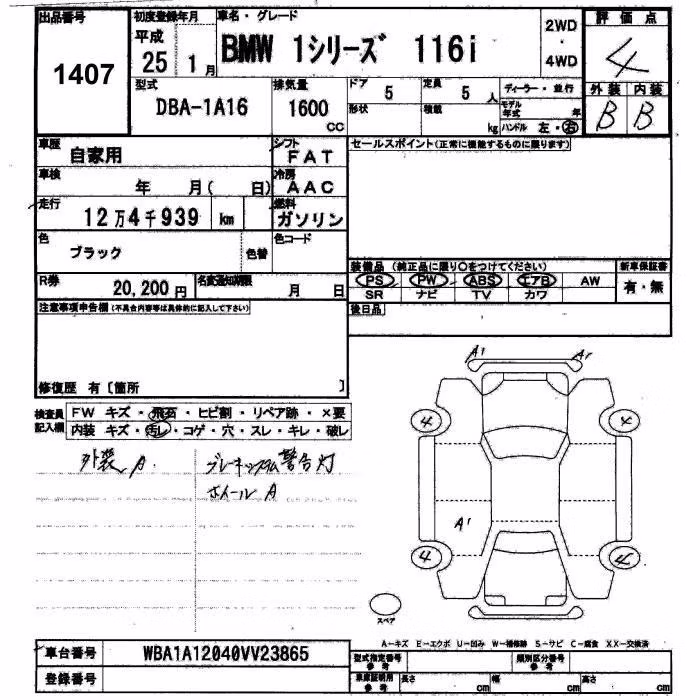 出品番号
1407
初度登録年月
平成
25 1月
車名・グレード
BMW 1シリーズ 116i
2WD
・
4WD
評価点
4
外装 内装
B B
型式
DBA-1A16
排気量
1600
cc
ドア
5
定員
5 人
形状
積載
kg
ディーラー・並行
モデル年式 年
ハンドル 左・右
車歴
自家用
シフト
FAT
車検
年 月( 日)
冷房
AAC
走行
12万4千939 km
燃料
ガソリン
色
ブラック
色替
色コード
R券
20,200円
名変通知期限
月 日
セールスポイント(正常に機能するものに限ります)
装備品 (純正品に限り○をつけてください)
PS PW ABS エアB AW
SR ナビ TV カワ
新車保証書
有・無
後日品
注意事項申告欄(不具合内容等は具体的に記入して下さい)
修復歴 有〔箇所 〕
検査員記入欄
FW キズ・飛石・ヒビ割・リペア跡・×要
内装 キズ・汚レ・コゲ・穴・スレ・キレ・破レ
外装 A.
ブレーキシステム警告灯
ホイール A
A1 A1
4 4
A1
4 4
スペア
A-キズ E-エクボ U-凹み W-補修跡 S-サビ C-腐食 XX-交換済
車台番号
WBA1A12040VV23865
登録番号
型式指定番号
参考
類別区分番号
参考
車庫証明用
参考
長さ cm
幅 cm
高さ cm